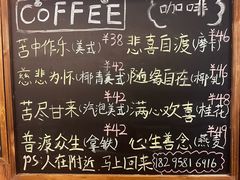 COFFEE {咖啡}
苦中作乐(美式) ¥38 悲喜自渡(摩卡) ¥46
慈悲为怀(椰青美式) ¥42 随缘自在(椰乳) ¥46
苦尽甘来(汽泡美式) ¥42 满心欢喜(桂花) ¥48
普渡众生(拿铁) ¥42 心生善念(燕麦) ¥49
ps:人在附近.马上回来 18295816916